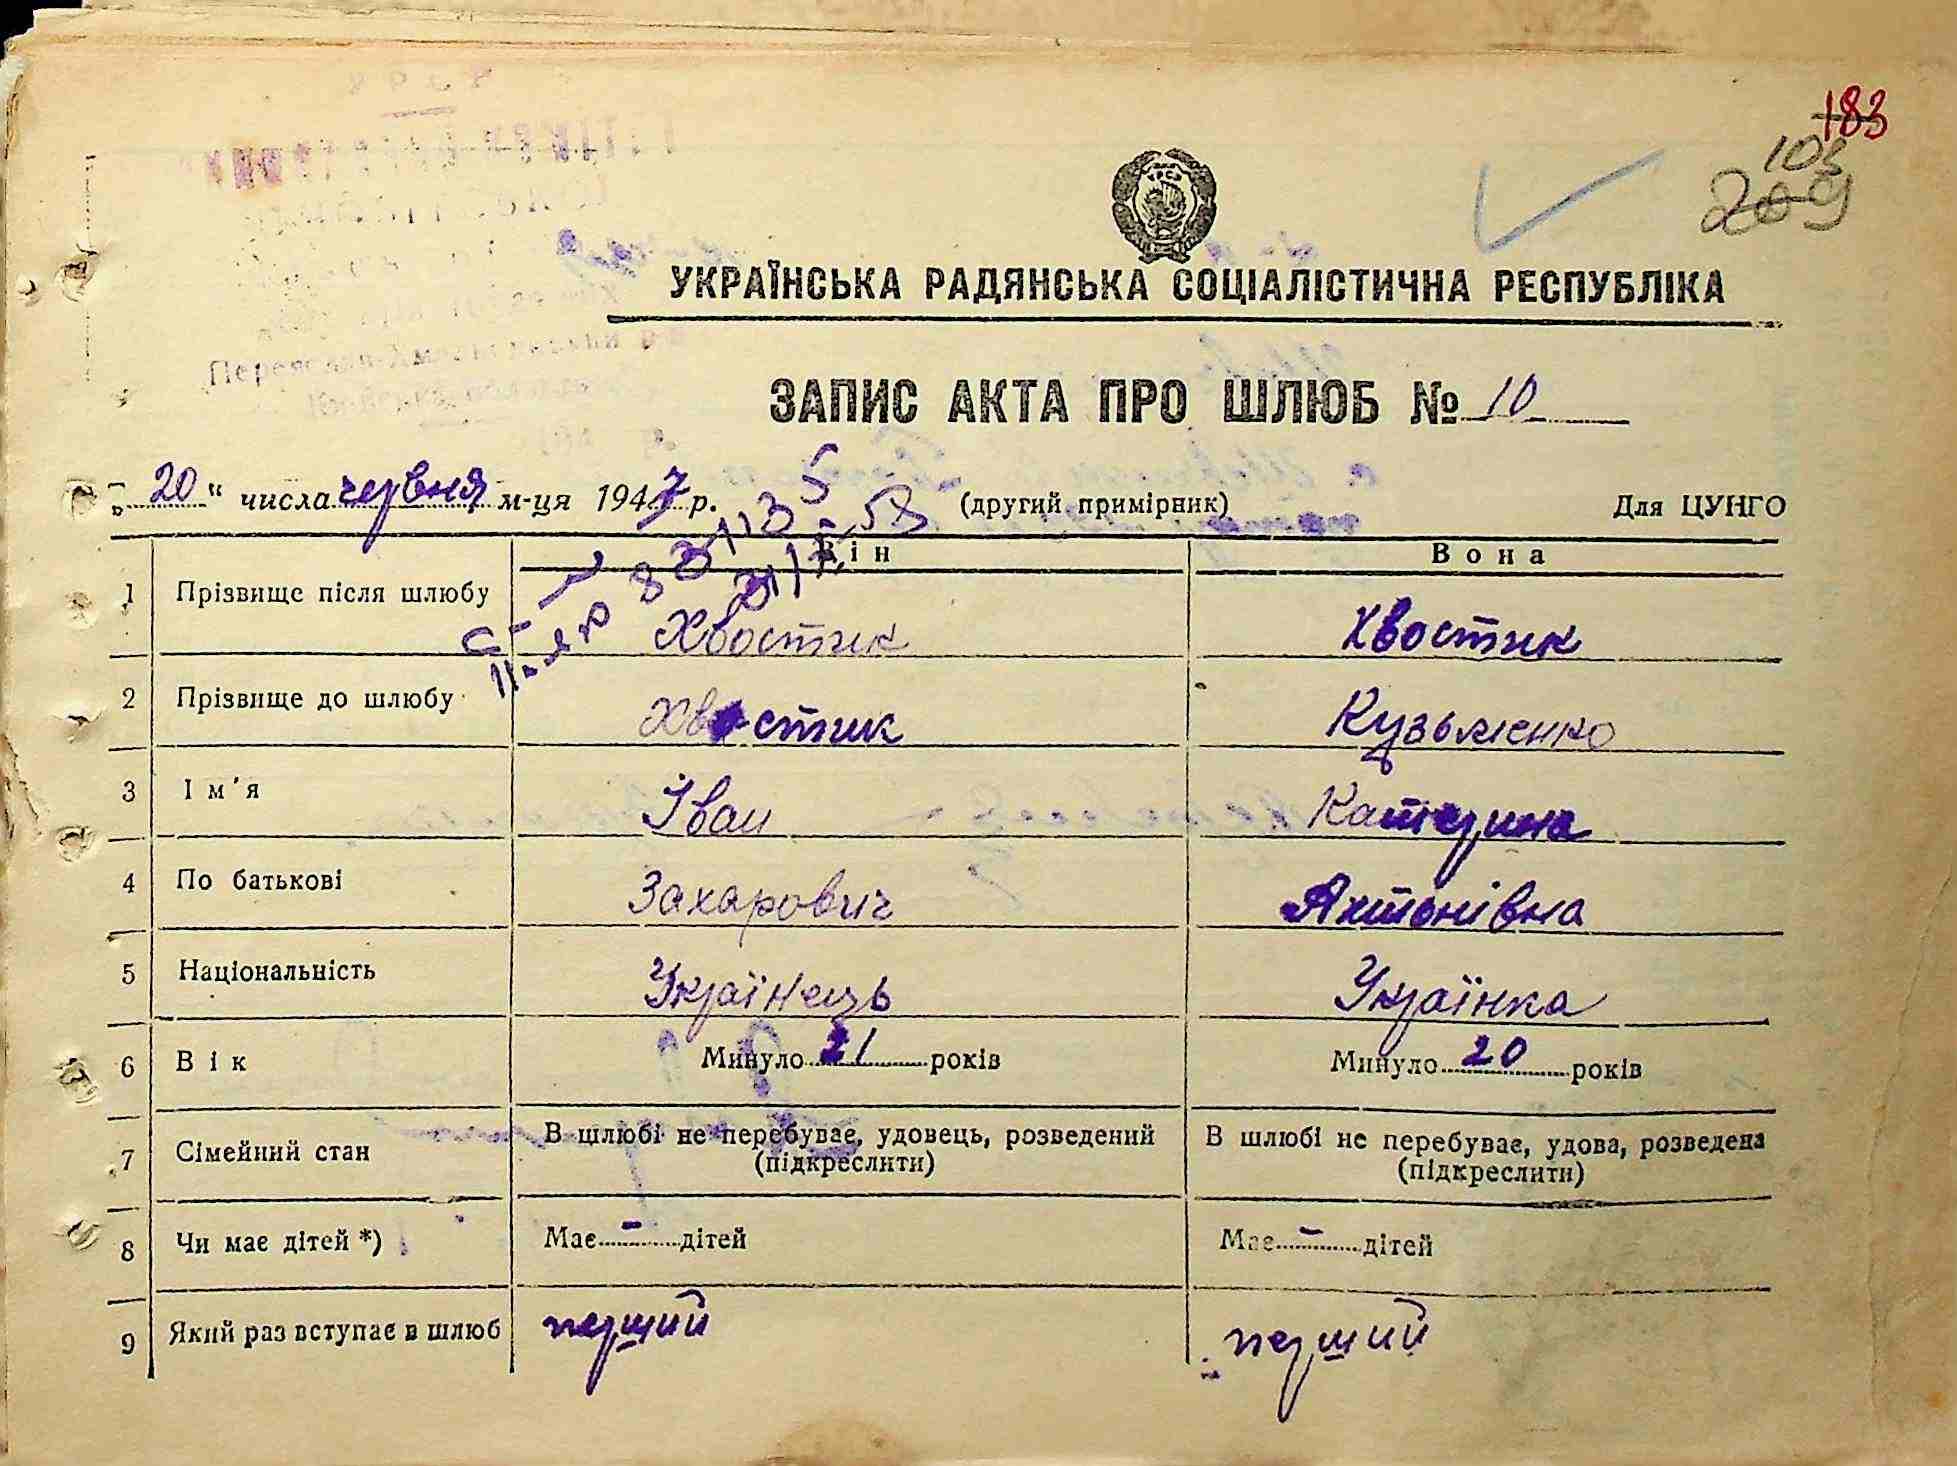 183
103
209
УКРАЇНСЬКА РАДЯНСЬКА СОЦІАЛІСТИЧНА РЕСПУБЛІКА
ЗАПИС АКТА ПРО ШЛЮБ № 10
„20“ числа червня м-ця 1947 р. (другий примірник) Для ЦУНГО
Він Вона
1 Прізвище після шлюбу Хвостик Хвостик
2 Прізвище до шлюбу Хвостик Кузьменко
3 Ім'я Іван Катерина
4 По батькові Захарович Антонівна
5 Національність Українець Українка
6 Вік Минуло 21 років Минуло 20 років
7 Сімейний стан В шлюбі не перебуває, удовець, розведений В шлюбі не перебуває, удова, розведена
(підкреслити) (підкреслити)
8 Чи має дітей *) Має - дітей Має - дітей
9 Який раз вступає в шлюб перший перший